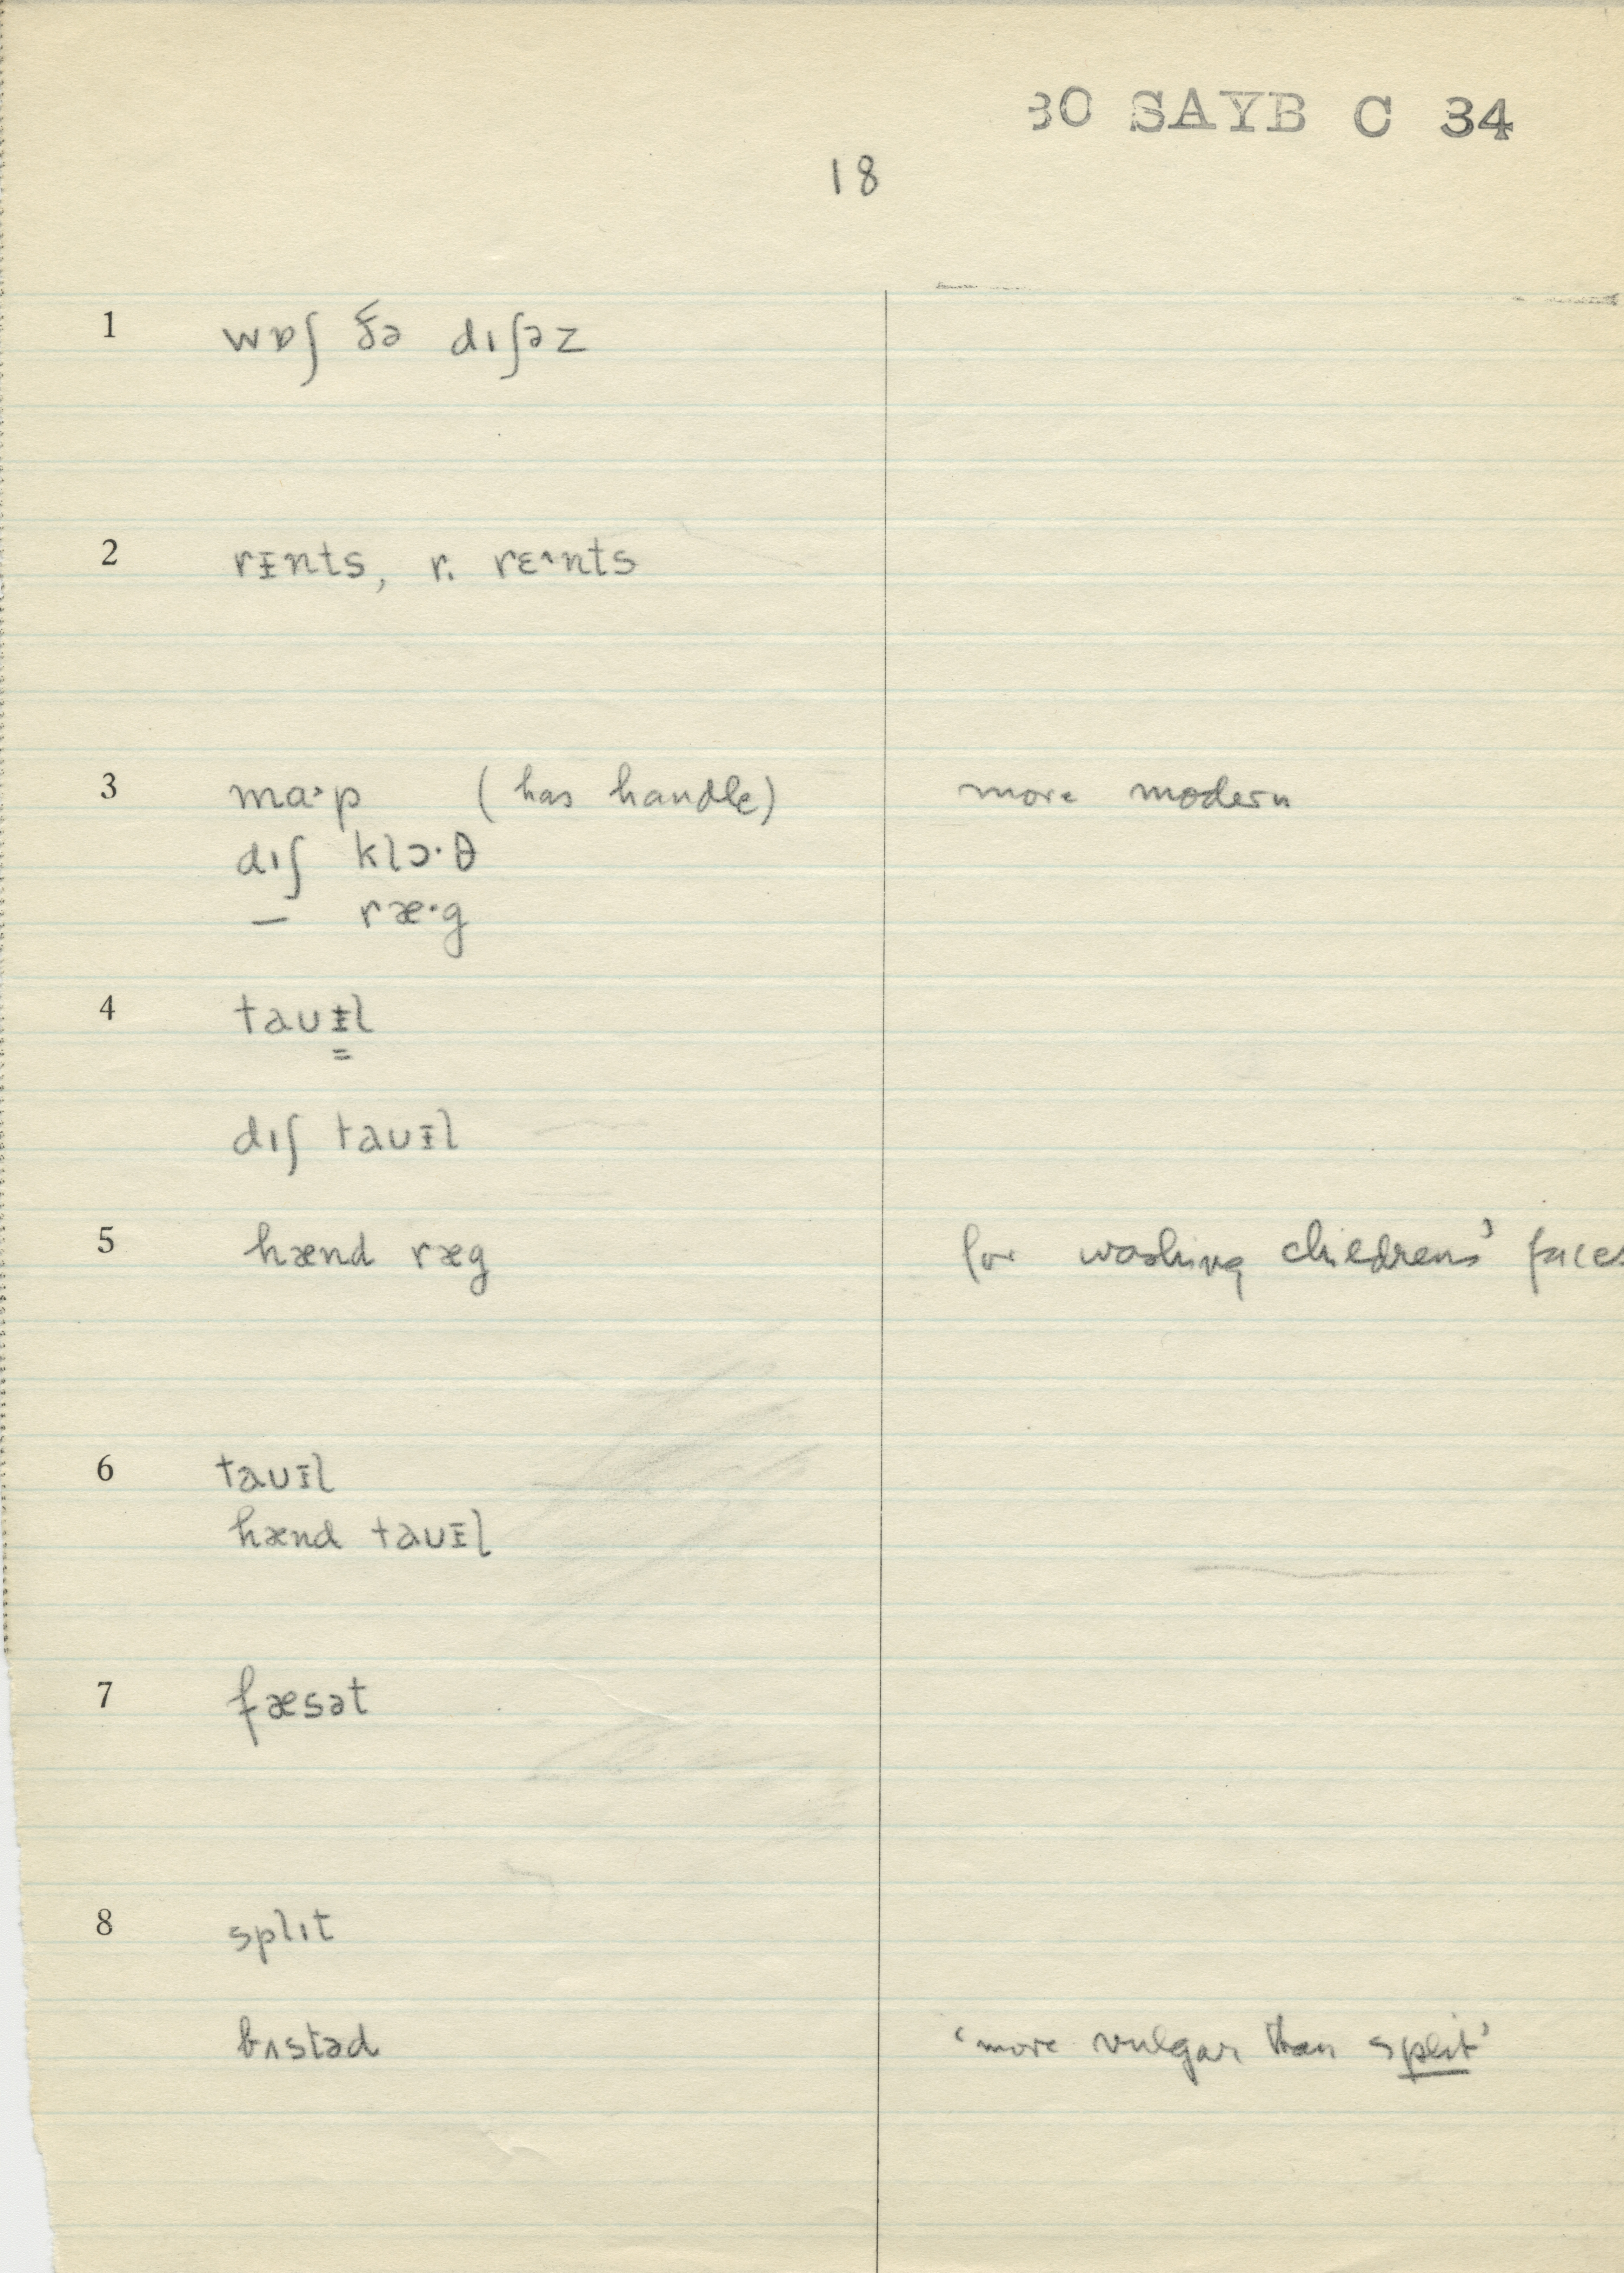 30 SAYB C 34
18
1 wɒʃ ðə dɪʃəz
2 rᵻnts, r. rɛ^nts
3 ma·p (has handle) more modern
dɪʃ klɔ·θ
— ræ·g
4 taʊᵻl
dɪʃ taʊᵻl
5 hænd ræg for washing childrens' faces
6 taʊᵻl
hænd taʊᵻl
7 fæsət
8 splɪt
bʌstəd 'more vulgar than split'